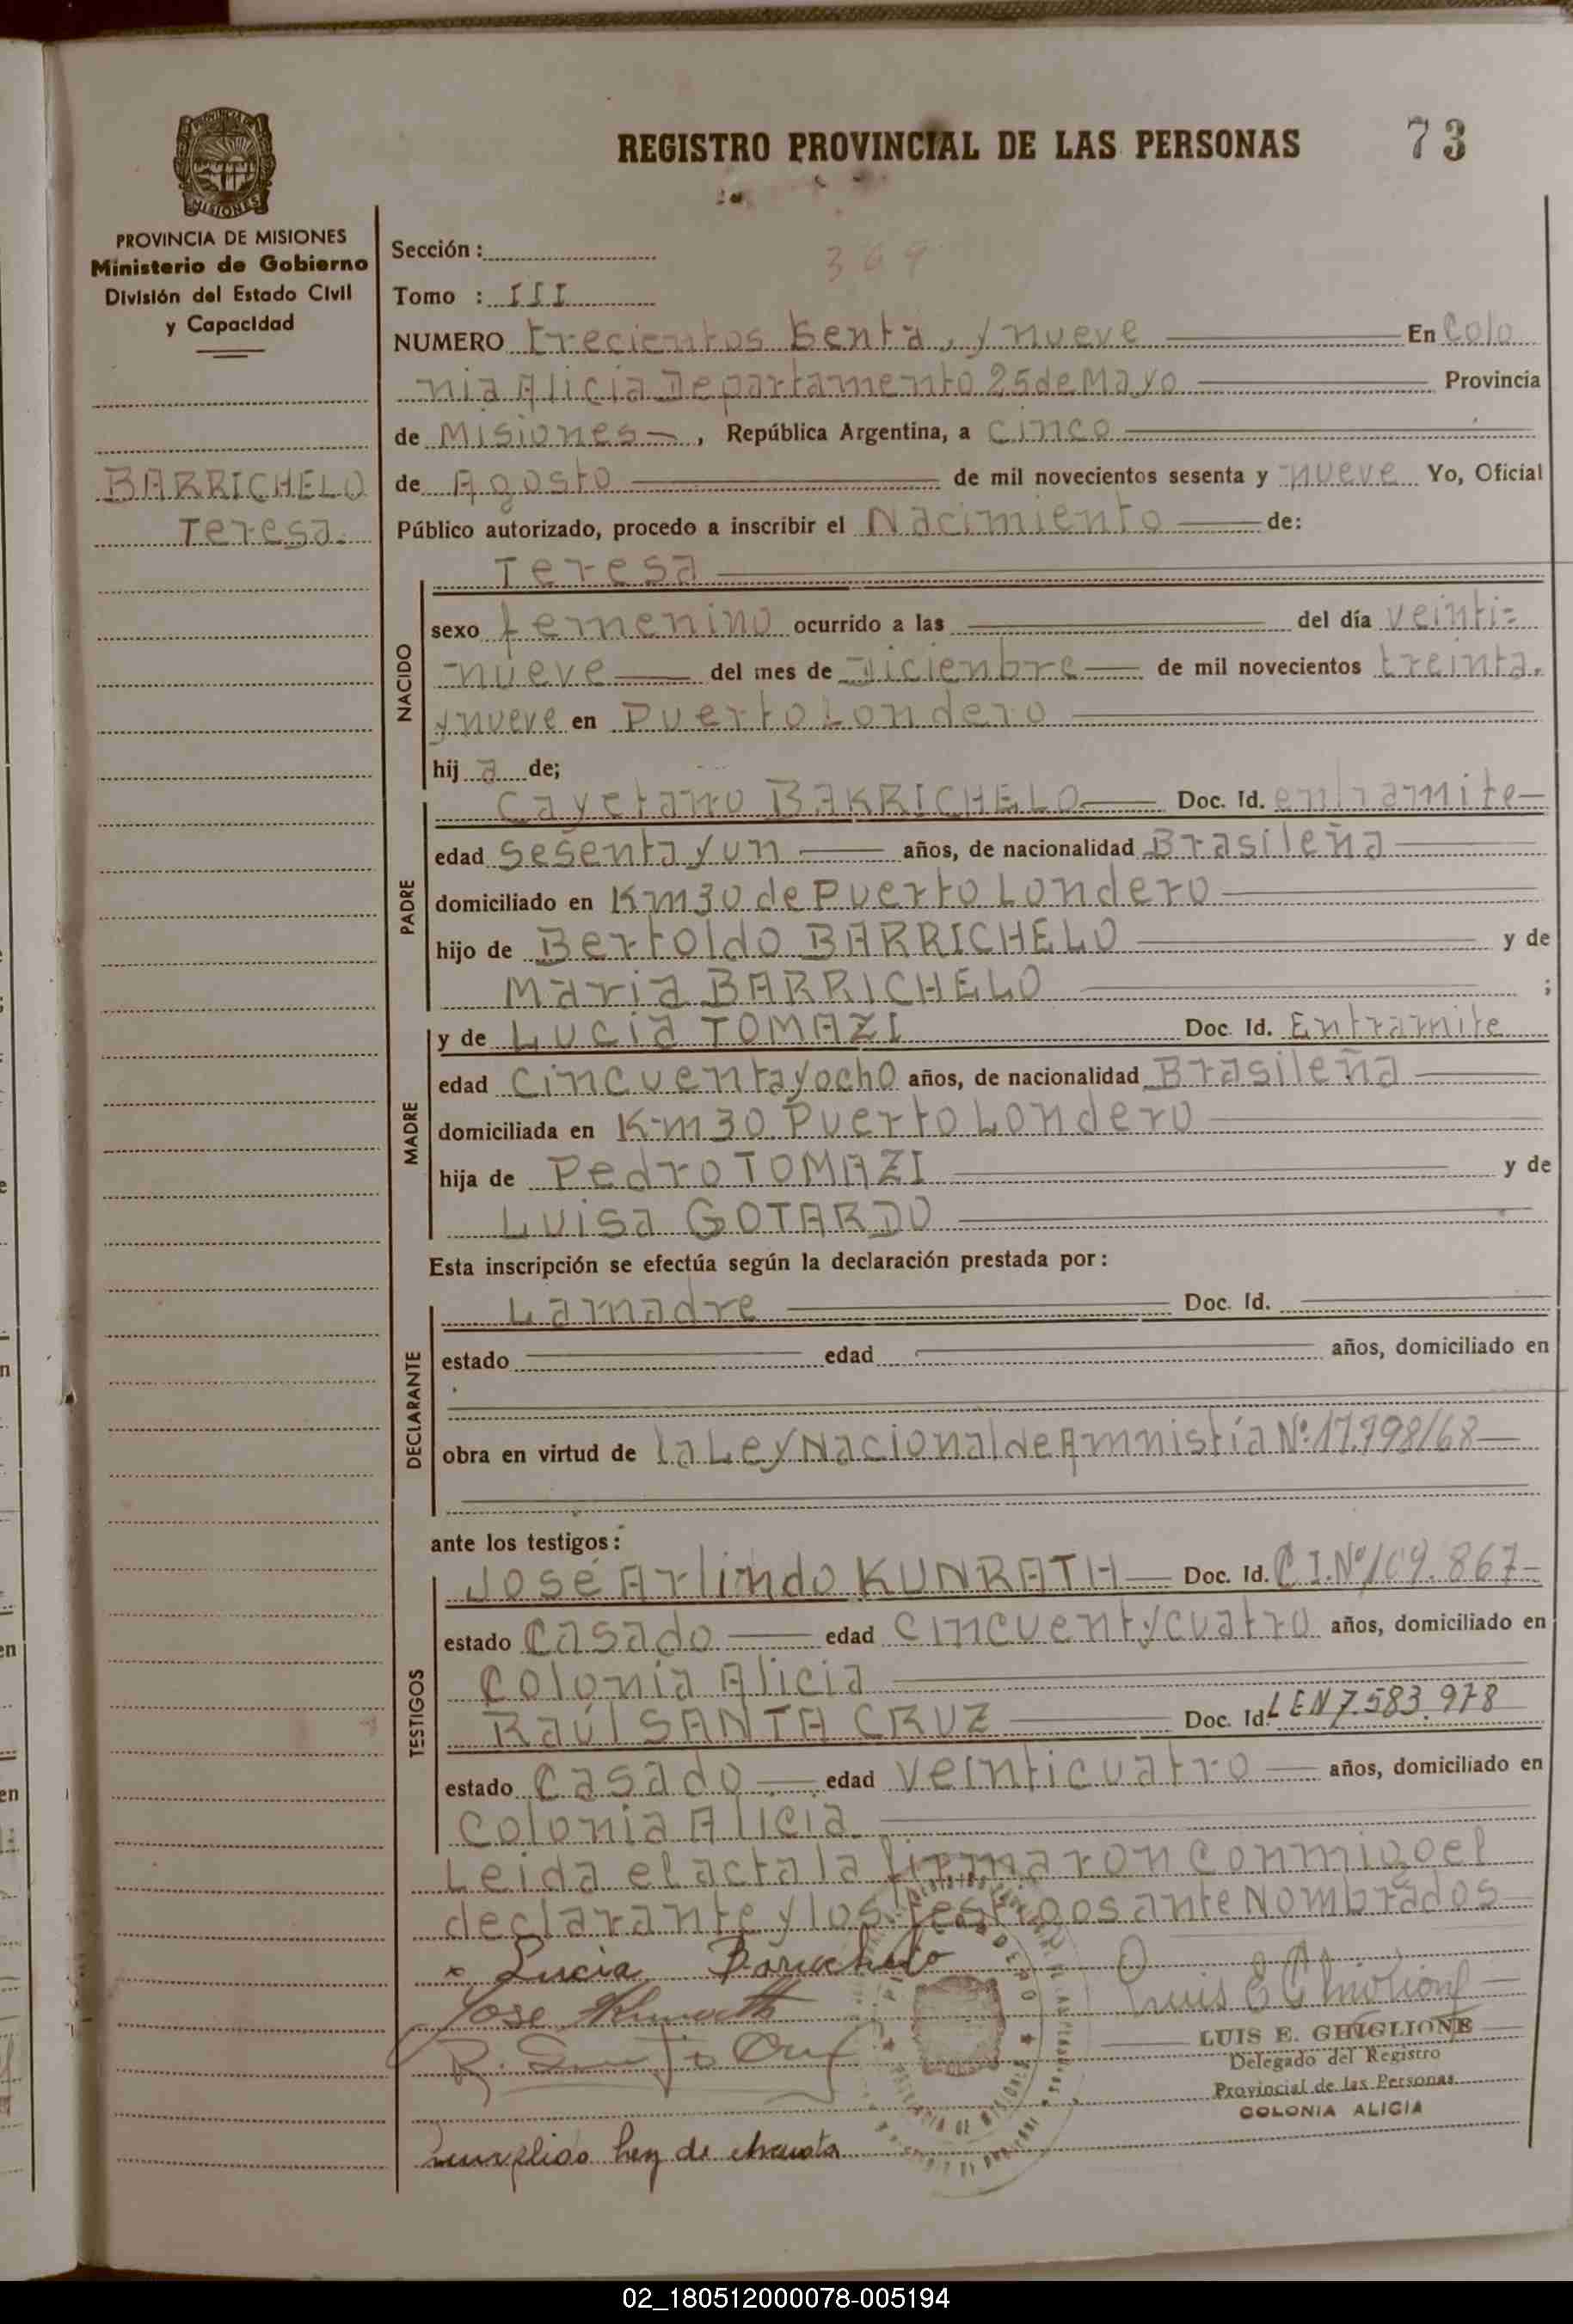 REGISTRO PROVINCIAL DE LAS PERSONAS
73
MISIONES
PROVINCIA DE MISIONES
Ministerio de Gobierno
División del Estado Civil
y Capacidad
BARRICHELO
Teresa.
Sección :
369
Tomo : III
NUMERO trecientos senta, y nueve En Colo
nia Alicia Departamento 25 de Mayo Provincia
de Misiones , República Argentina, a cinco
de Agosto de mil novecientos sesenta y nueve Yo, Oficial
Público autorizado, procedo a inscribir el Nacimiento de:
Teresa
NACIDO
sexo femenino ocurrido a las del día veinti=
nueve del mes de Dicienbre de mil novecientos treinta.
y nueve en Puerto Londero
hij a de;
PADRE
Cayetano BARRICHELO Doc. Id. en tramite
edad sesenta y un años, de nacionalidad Brasileña
domiciliado en Km 30 de Puerto Londero
hijo de Bertoldo BARRICHELO y de
Maria BARRICHELO ;
MADRE
y de Lucia TOMAZI Doc. Id. En tramite
edad cincuenta y ocho años, de nacionalidad Brasileña
domiciliada en Km 30 Puerto Londero
hija de Pedro TOMAZI y de
Luisa GOTARDO
Esta inscripción se efectúa según la declaración prestada por :
DECLARANTE
La madre Doc. Id.
estado edad años, domiciliado en
obra en virtud de la Ley Nacional de Amnistía Nº 17.798/68
ante los testigos :
TESTIGOS
José Arlindo KUNRATH Doc. Id. C.I.Nº 109.867
estado Casado edad cincuent y cuatro años, domiciliado en
Colonia Alicia
Raúl SANTA CRUZ Doc. Id. LEN 7.583.978
estado Casado edad veinticuatro años, domiciliado en
Colonia Alicia
Leida el acta la firmaron conmigo el
declarante y los testigos ante Nombrados
x Lucia Barichelo
Jose Kunrath
R. Santa Cruz
LUIS E. GHIGLIONE
Delegado del Registro
Provincial de las Personas
COLONIA ALICIA
ley de
02_180512000078-005194